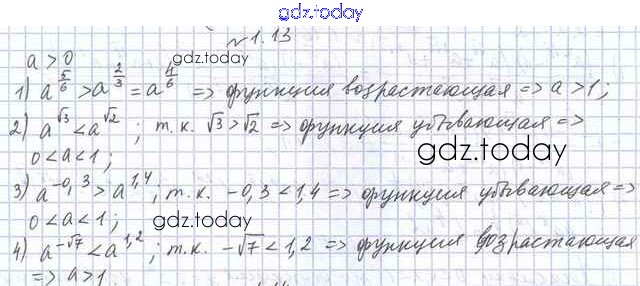 gdz.today
№1.13
a > 0 gdz.today
1) a^(5/6) > a^(2/3) = a^(4/6) => функция возрастающая => a > 1;
2) a^√3 < a^√2 ; т.к. √3 > √2 => функция убывающая =>
0 < a < 1;
gdz.today
3) a^-0,3 > a^1,4; т.к. -0,3 < 1,4 => функция убывающая =>
0 < a < 1;
gdz.today
4) a^-√7 < a^1,2 ; т.к. -√7 < 1,2 => функция возрастающая
=> a > 1